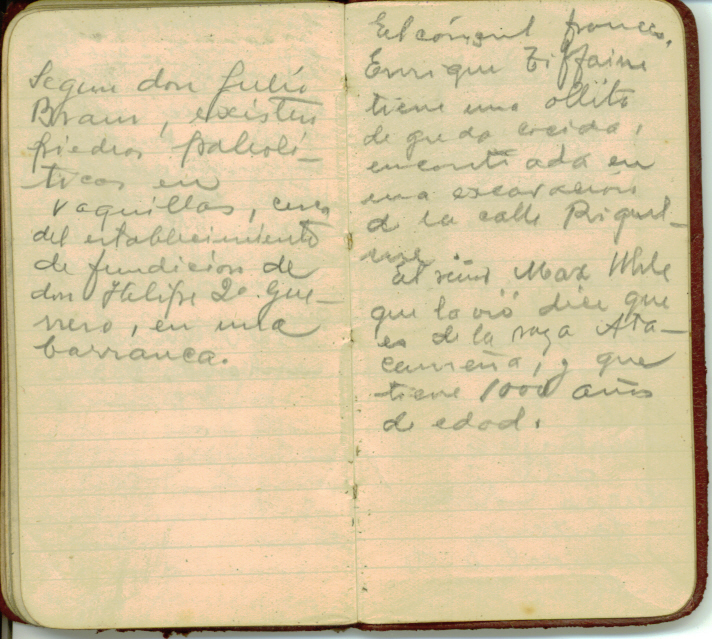 Segun don Julio
Braun, existen
piedras paleolí-
ticas en
Vaquillas, cerca
del establecimiento
de fundicion de
don Felipe 2º. Gue-
rrero, en una
barranca.
El cónsul francés,
Enrique Tiffaine
tiene una ollita
de greda cocida,
encontrada en
una escavación
de la calle Riquel-
me.
El señor Max Uhle
que la vió dice que
es de la raza Ata-
cameña, y que
tiene 1000 años
de edad.